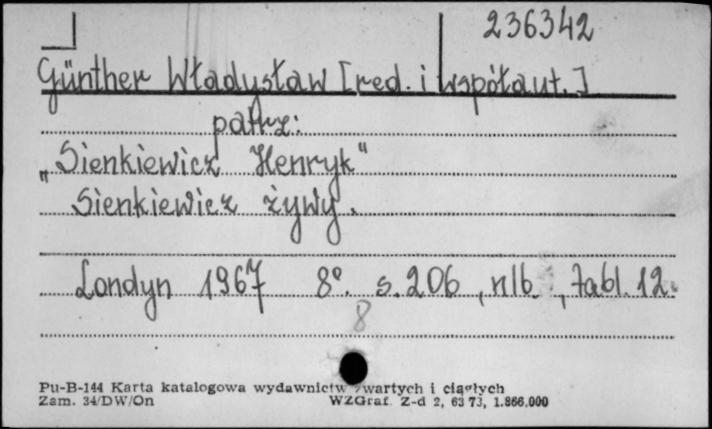 236342
Günther Władysław [red. i współaut.]
patrz:
„Sienkiewicz Henryk"
Sienkiewicz żywy.
Londyn 1967 8°. s. 206, nlb., tabl. 12.
8
Pu-B-144 Karta katalogowa wydawnictw zwartych i ciągłych
Zam. 34/DW/On WZGraf. Z-d 2, 63 73, 1.866.000